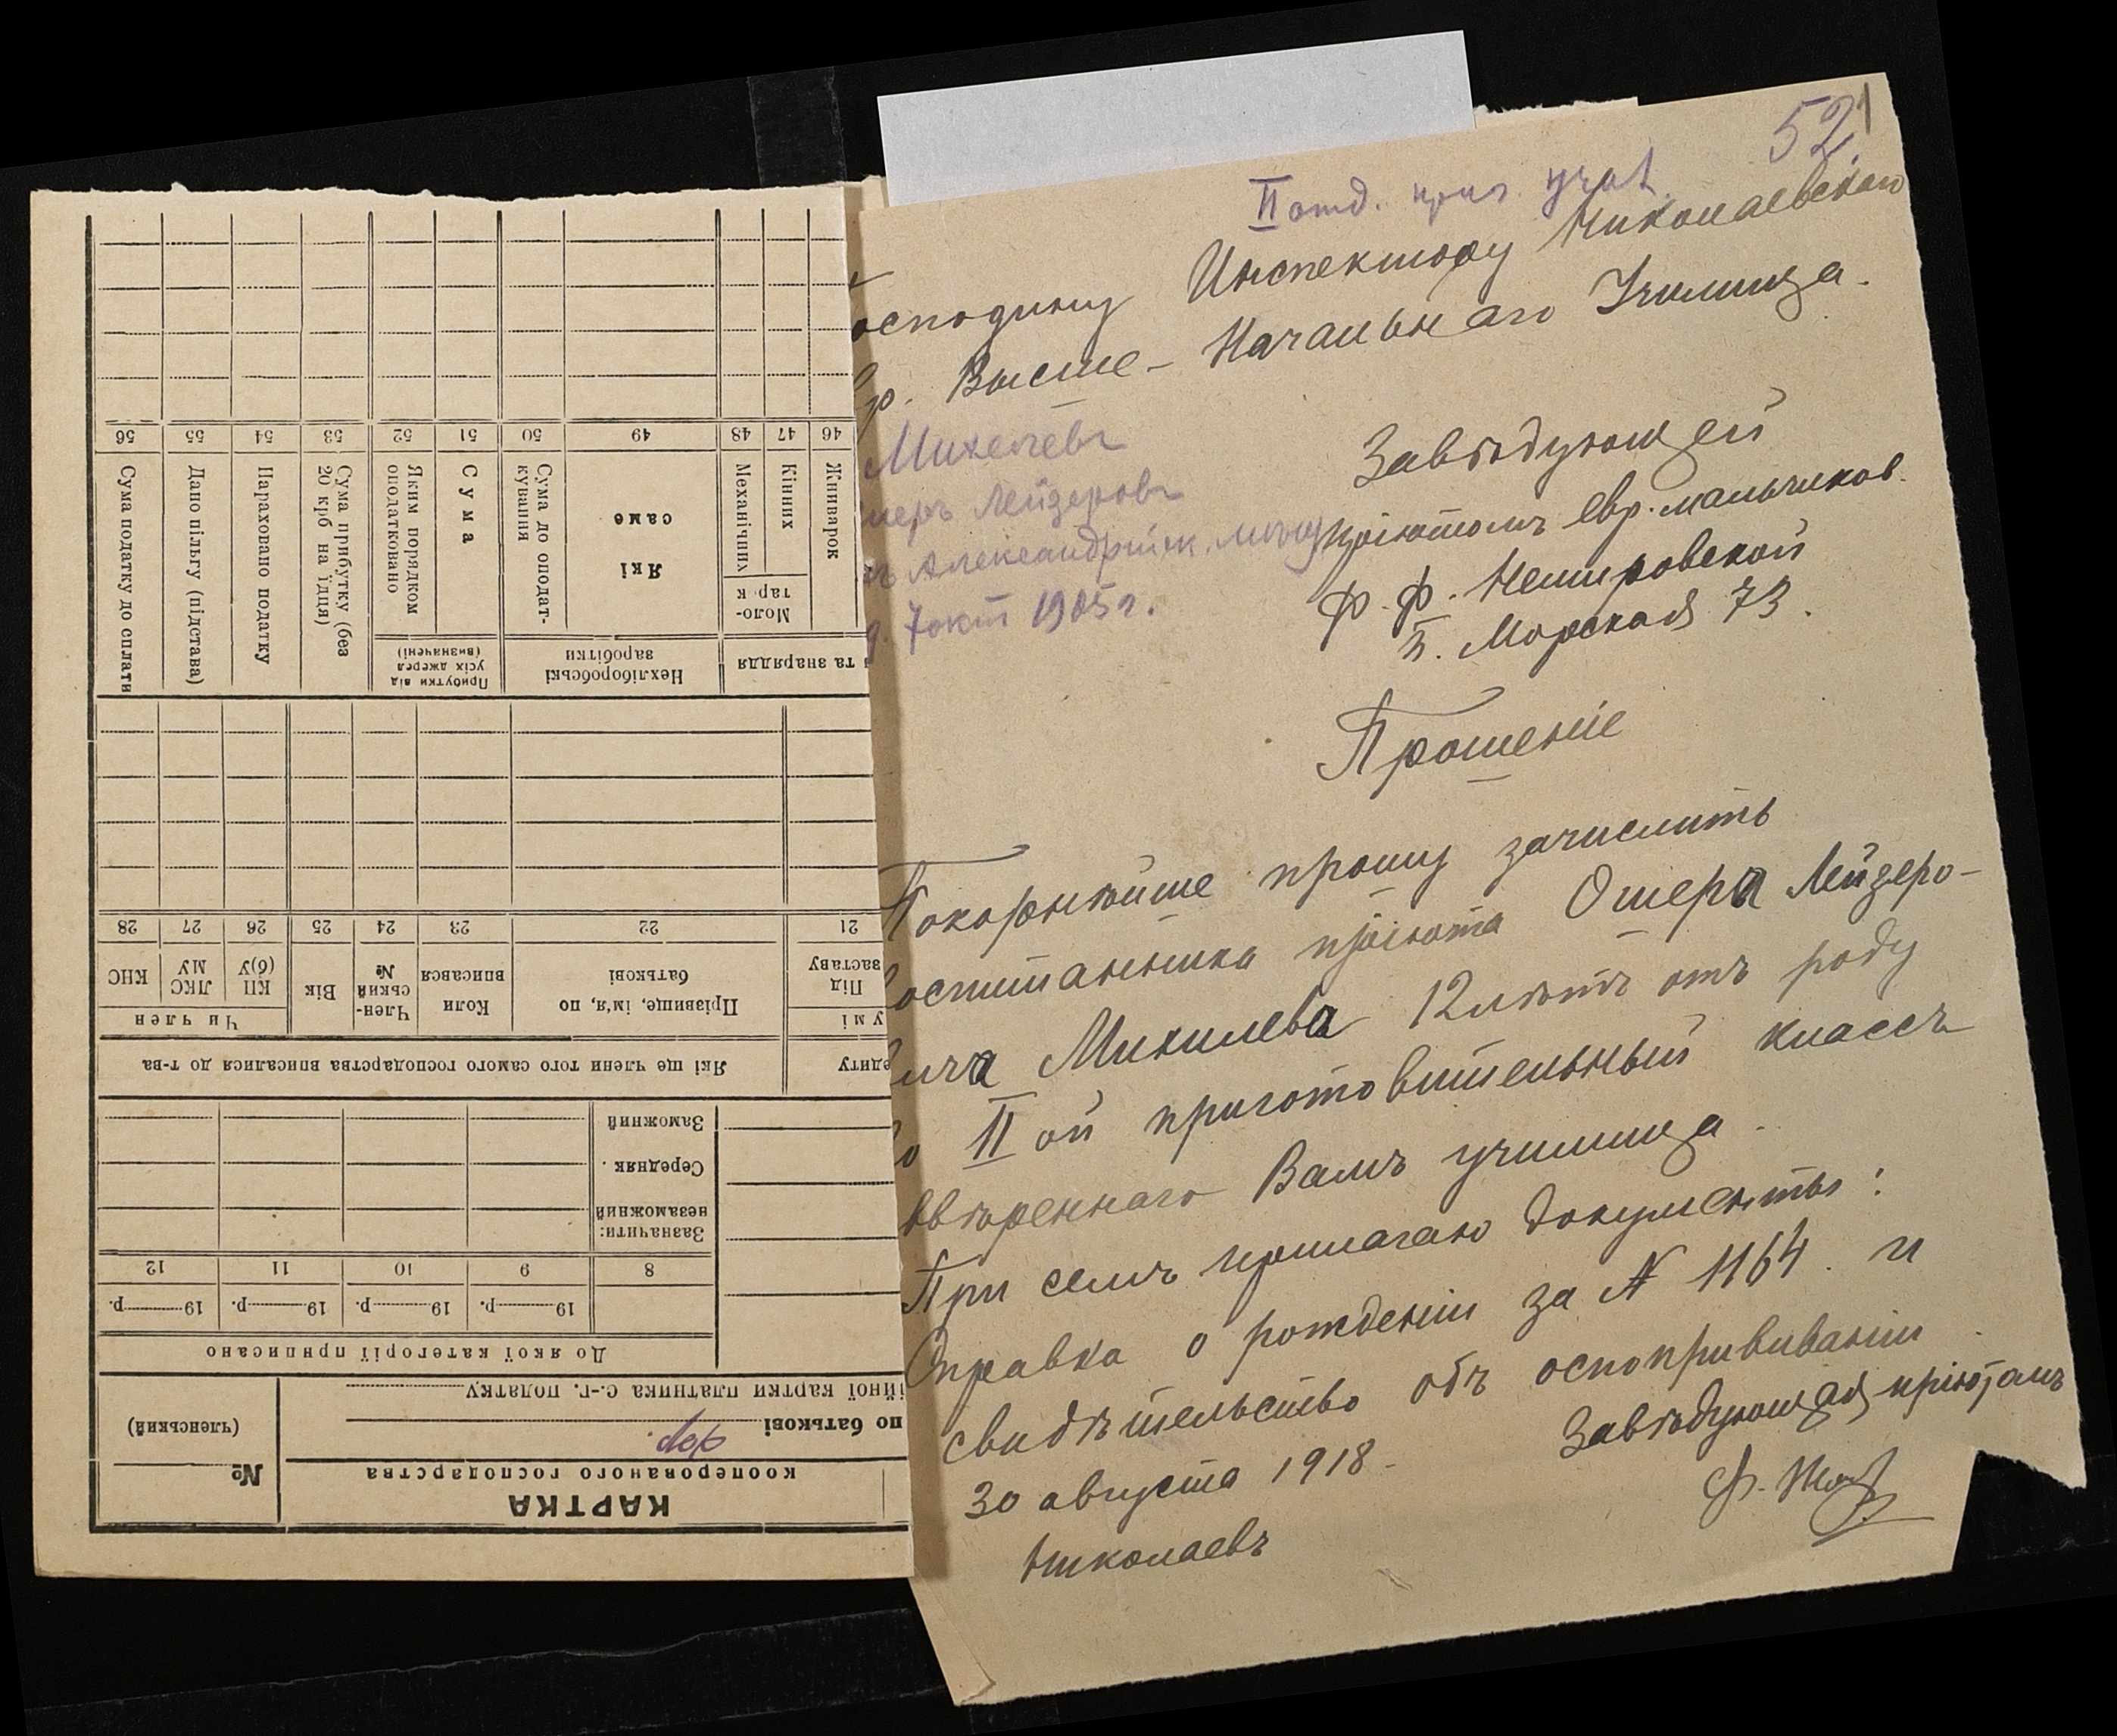 52
II отд. приг. учил.
осподину Инспектору Николаевскаго
р. Высше-Начальнаго Училища.
Михелевъ
шеръ Лейзеровъ
Александрійск. мѣщ
7 окт 1905 г.
Завѣдующей
пріютомъ евр. мальчиков.
Ф. Ф. Немировской
Б. Морская 73.
Прошеніе
Покорнѣйше прошу зачислить
воспитанника пріюта Ошера Лейзеро-
вича Михилева 12 лѣтъ отъ роду
во II ой приготовительный классъ
ввѣреннаго Вамъ училища.
При семъ прилагаю документы:
Справка о рожденіи за № 1164 и
свидѣтельство объ оспопрививаніи
30 августа 1918.
Завѣдующая пріютамъ
Николаевъ
КАРТКА
кооперованого господарства
№
(членський)
по батькові
ійної картки платника с.-г. податку
До якої категорії приписано
19 р. 19 р. 19 р. 19 р.
8 9 10 11 12
Зазначити:
незаможний
Середняк
Заможний
едиту
Які ще члени того самого господарства вписалися до т-ва
у мі
Під
заставу
Прізвище, ім'я, по
батькові
Коли
вписався
Член-
ський
№
Вік
Чи член
КП
(б)У
ЛКС
МУ
КНС
21 22 23 24 25 26 27 28
та знаряддя
Нехліборобські
заробітки
Прибутки від
усіх джерел
(визначені)
Жниварок
Моло-
тарк
Кінних
Механічних
Які
саме
Сума до оподат-
кування
Сума
Яким порядком
оподатковано
Сума прибутку (без
20 крб на їдця)
Нараховано податку
Дано пільгу (підстава)
Сума податку до сплати
46 47 48 49 50 51 52 53 54 55 56